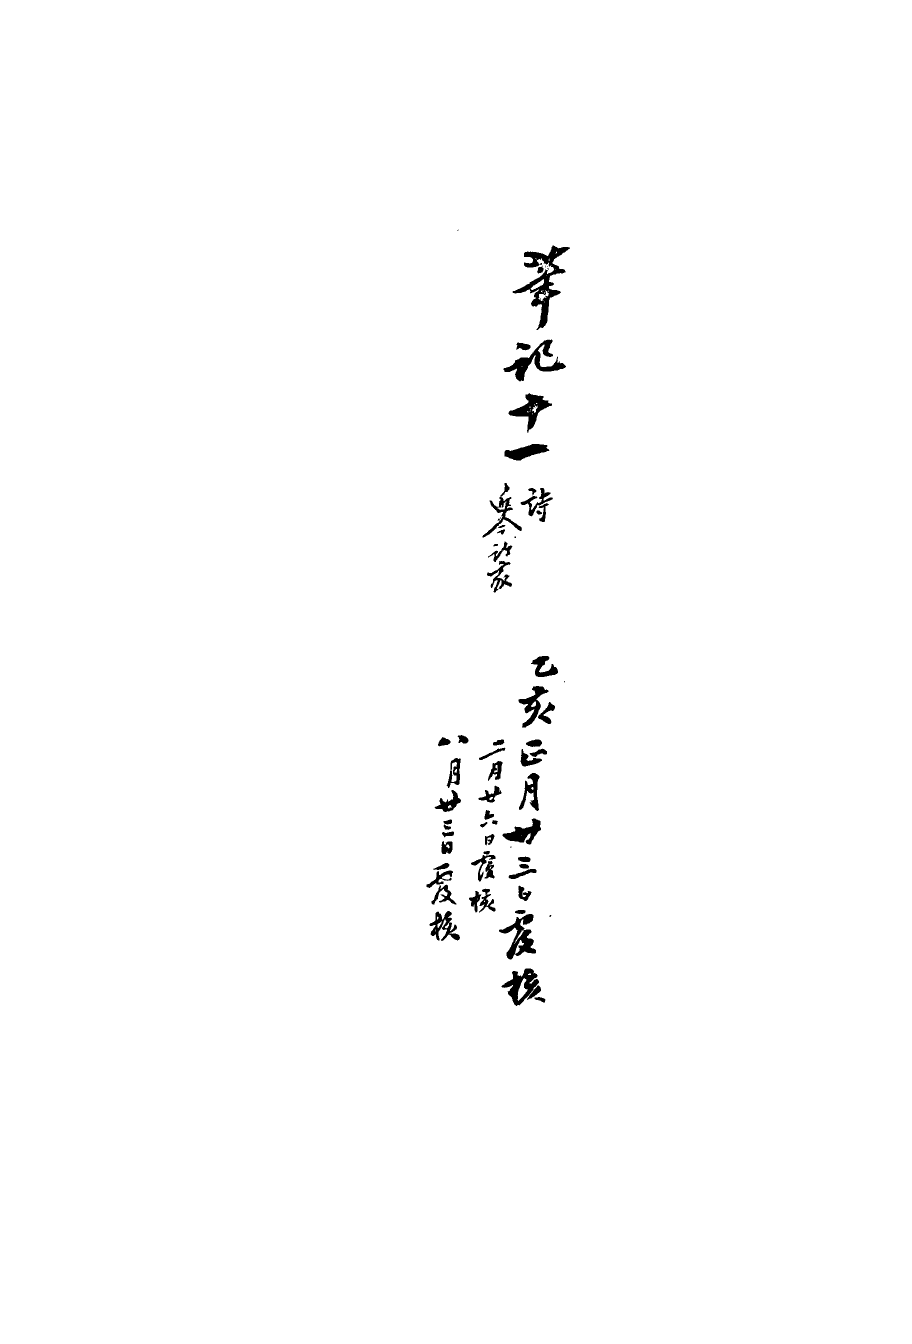 筆記十一
詩
乙亥正月廿三日覆核
二月廿六日覆核
八月廿三日覆核